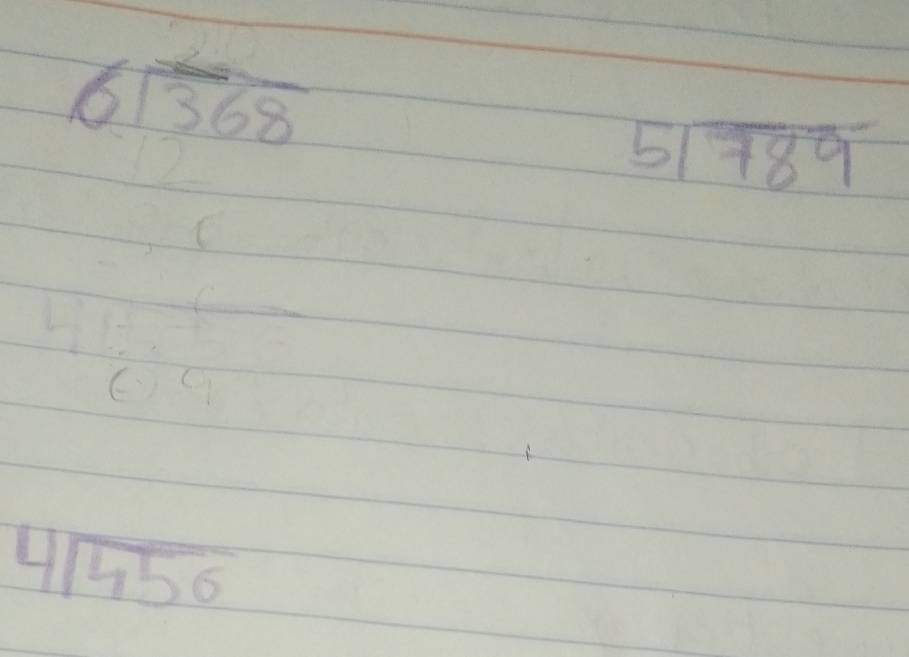 6 368
5 789
4 456